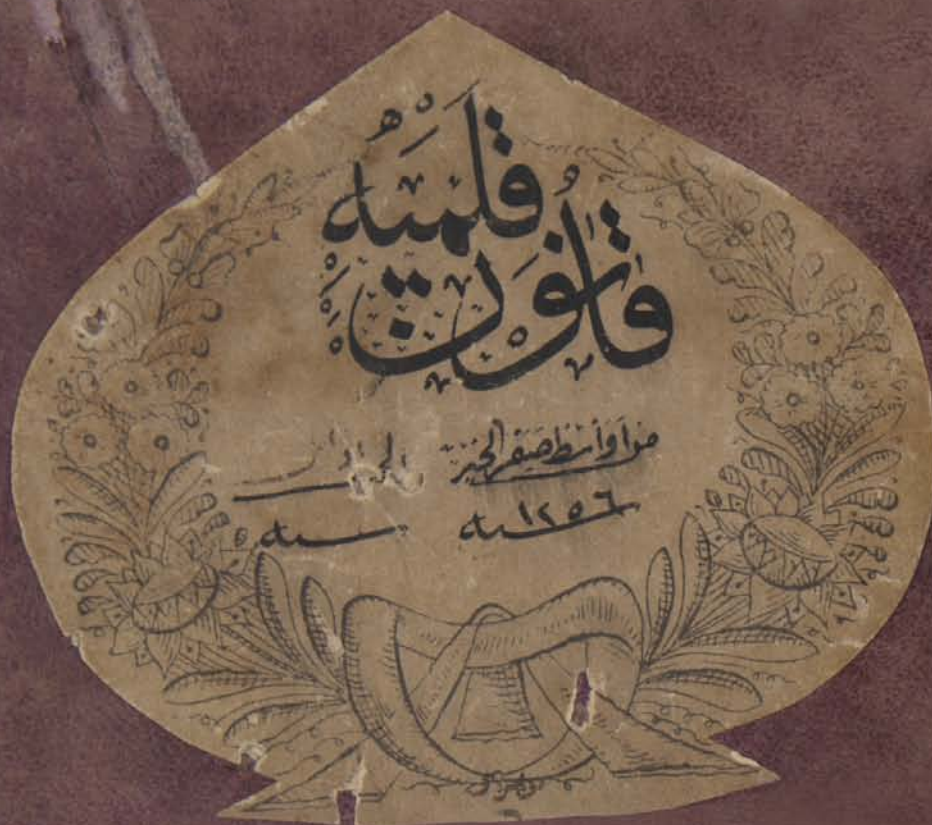 قانون قلميه
من اواسط صفر الخير
سنه ١٢٥٦ سنه